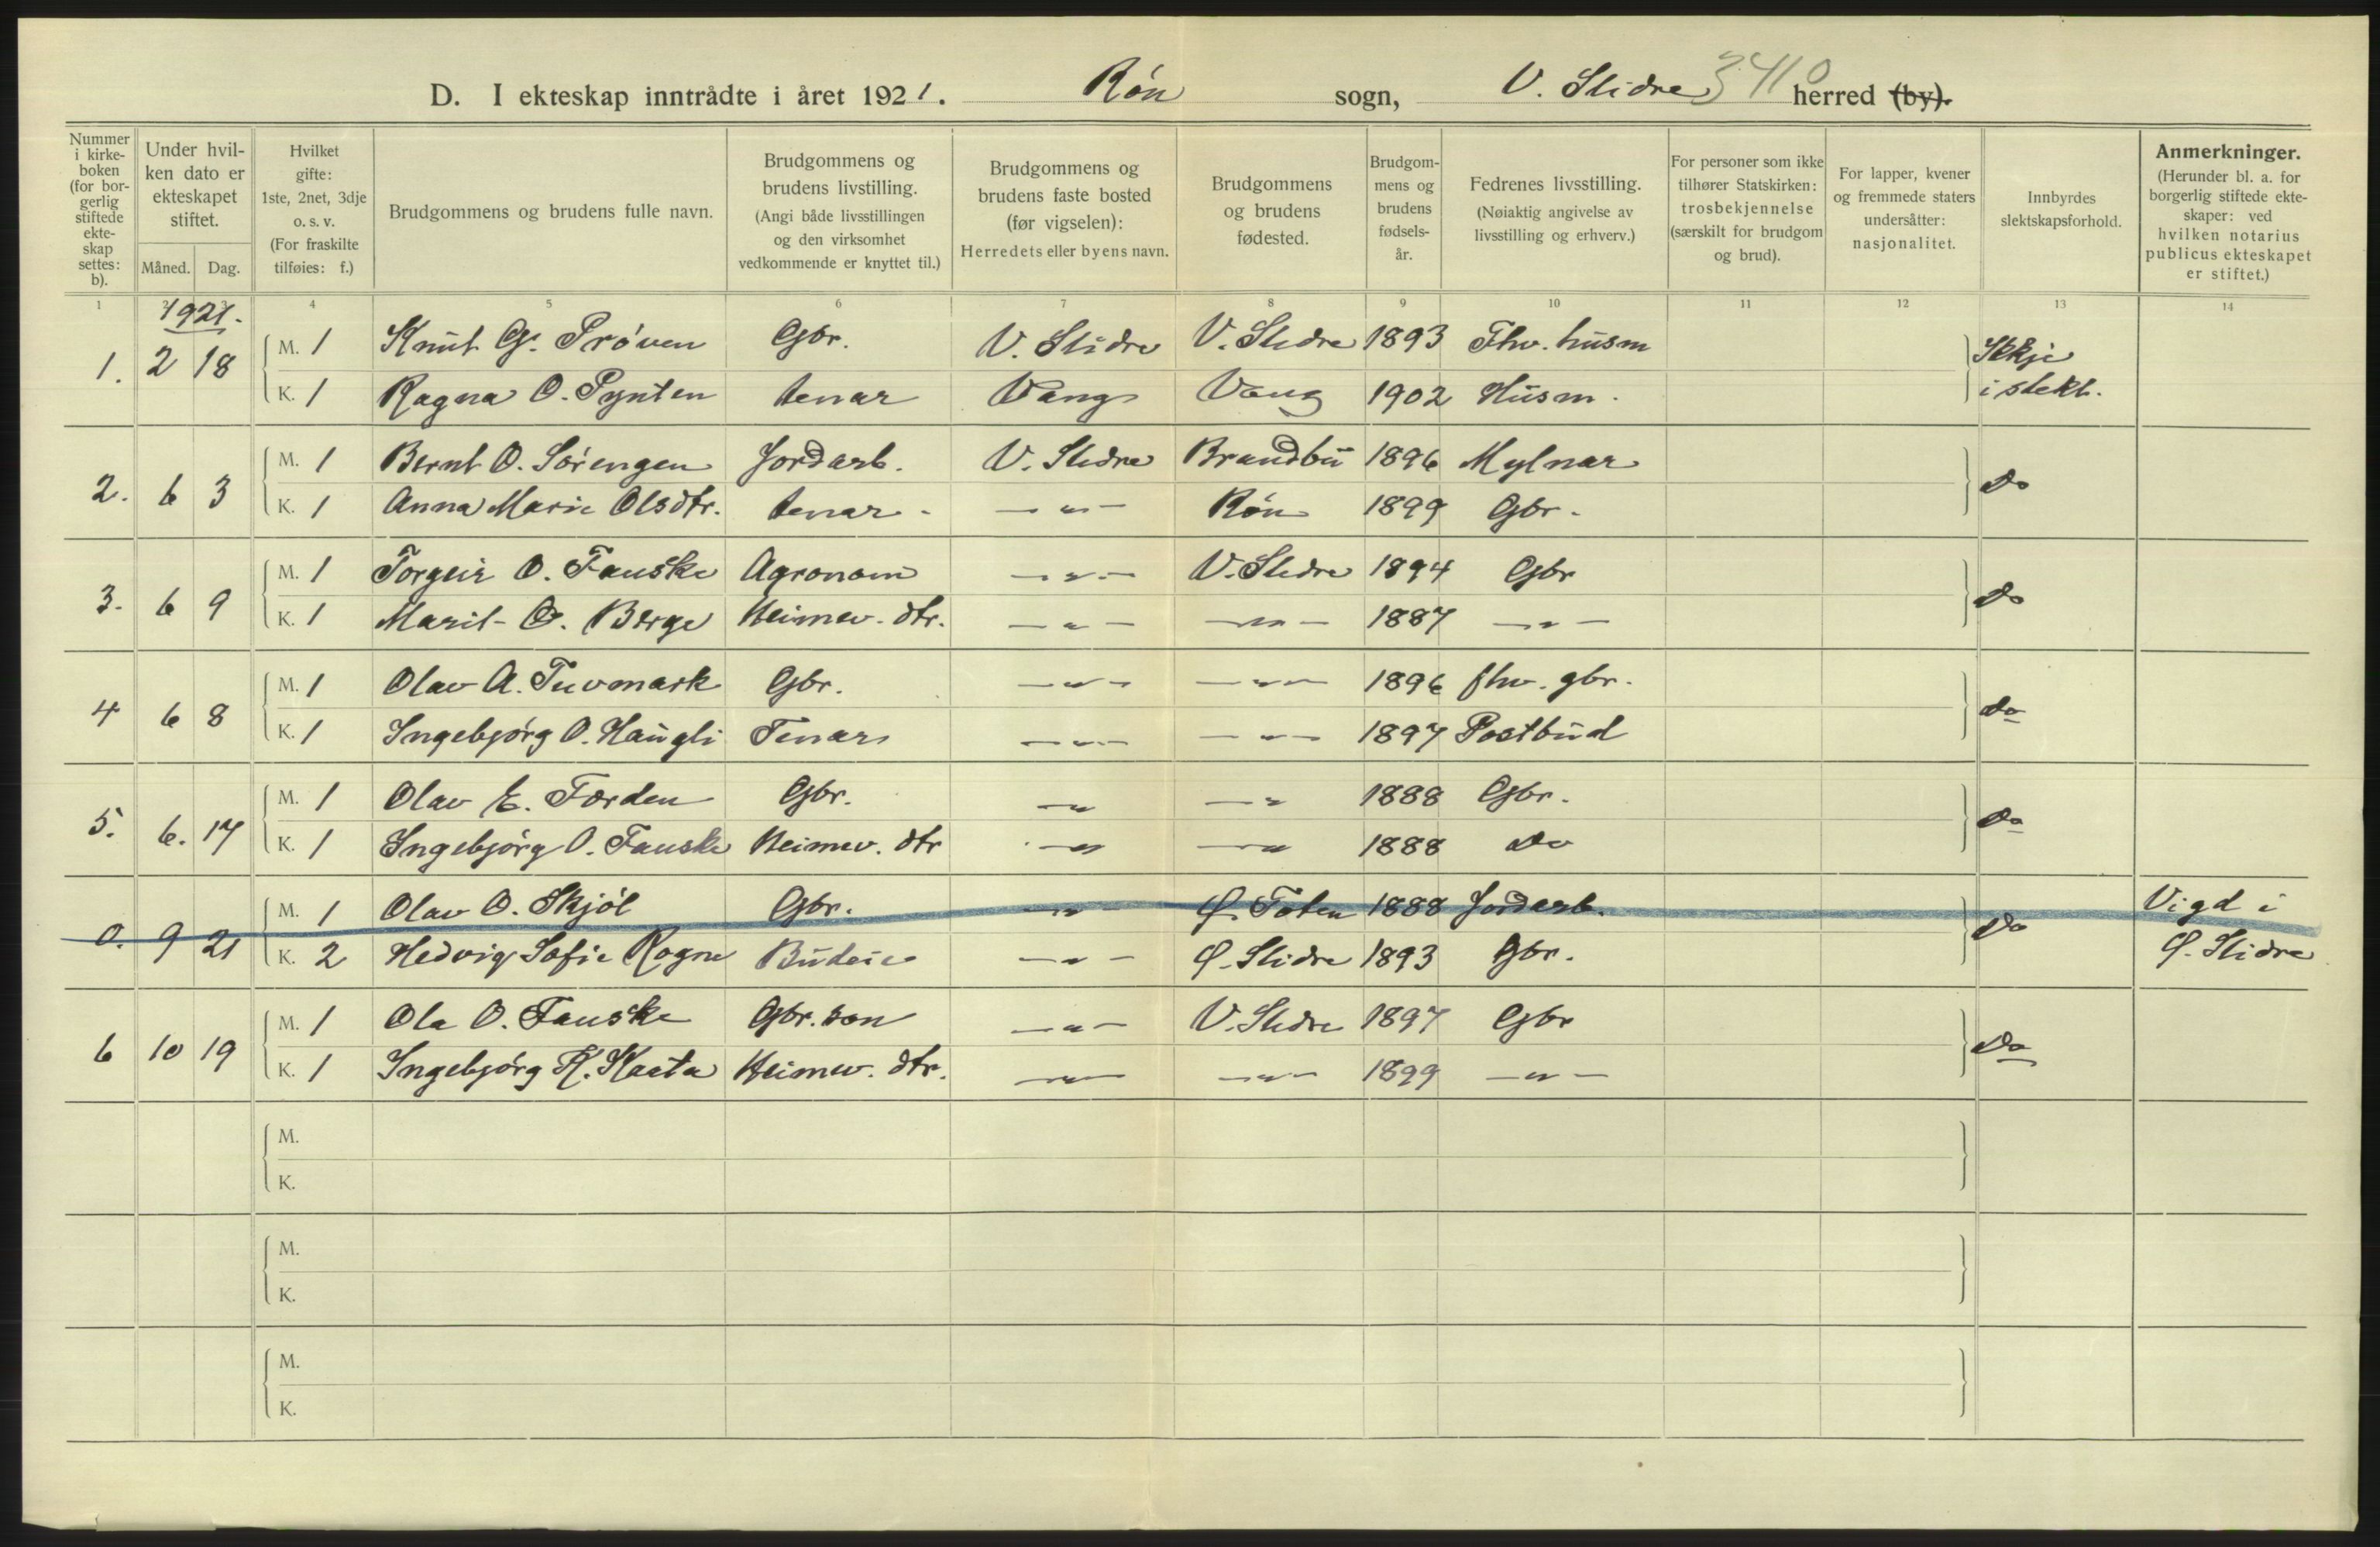 D. I ekteskap inntrådte i året 1921. Røn sogn, V. Slidre 3410 herred (by).
Nummer i kirkeboken (for borgerlig stiftede ekteskap settes: b).
Under hvilken dato er ekteskapet stiftet.
Måned. Dag.
Hvilket gifte: 1ste, 2net, 3dje o. s. v. (For fraskilte tilføies: f.)
Brudgommens og brudens fulle navn.
Brudgommens og brudens livstilling. (Angi både livsstillingen og den virksomhet vedkommende er knyttet til.)
Brudgommens og brudens faste bosted (før vigselen): Herredets eller byens navn.
Brudgommens og brudens fødested.
Brudgommens og brudens fødselsår.
Fedrenes livsstilling. (Nøiaktig angivelse av livsstilling og erhverv.)
For personer som ikke tilhører Statskirken: trosbekjennelse (særskilt for brudgom og brud).
For lapper, kvener og fremmede staters undersåtter: nasjonalitet.
Innbyrdes slektskapsforhold.
Anmerkninger. (Herunder bl. a. for borgerlig stiftede ekteskaper: ved hvilken notarius publicus ekteskapet er stiftet.)
1 2 3 4 5 6 7 8 9 10 11 12 13 14
1921.
1. 2 18 M. 1 Knut G. Prøven Gbr. V. Slidre V. Slidre 1893 Fhv. husm Ikkje
K. 1 Ragna O. Pynten tenar Vang Vang 1902 Husm. i slekt.
2. 6 3 M. 1 Bernt O. Sørengen Jordarb. V. Slidre Brandbu 1896 Mylnar Do
K. 1 Anna Marie Olsdtr. tenar - — „ — Røn 1899 Gbr.
3. 6 9 M. 1 Torgeir O. Fauske Agronom — „ — V. Slidre 1894 Gbr Do
K. 1 Marit O. Berge Heimev. dtr. — „ — — „ — 1887 — „ —
4 6 8 M. 1 Olav A. Tuvmark Gbr. — „ — — „ — 1896 fhv. gbr. Do
K. 1 Ingebjørg O. Haugli Tenar — „ — — „ — 1897 Postbud
5. 6. 17 M. 1 Olav E. Førden Gbr. — „ — „ 1888 Gbr. Do
K. 1 Ingebjørg O. Fauske Heimev. dtr — „ — „ 1888 Do
0. 9 21 M. 1 Olav O. Skjøl Gbr. — „ — Ø. Toten 1888 Jordarb. Do Vigd i
K. 2 Hedvig Sofie Rogne Budeie — „ — Ø. Slidre 1893 Gbr. Ø. Slidre
6 10 19 M. 1 Ola O. Fauske Gbr. son — „ — V. Slidre 1897 Gbr Do
K. 1 Ingebjørg K. Kasta Heimev. dtr. — „ — — „ — 1899 — „ —
M.
K.
M.
K.
M.
K.